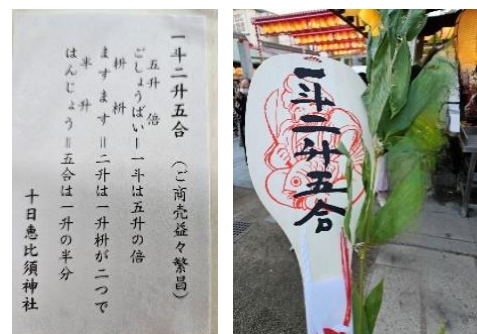 一斗二升五合　（ご商売益々繁昌）
五升　倍
ごしょうばい＝一斗は五升の倍
枡　枡
ますます＝二升は一升枡が二つで
半　升
はんじょう＝五合は一升の半分
十日恵比須神社
一斗二升五合